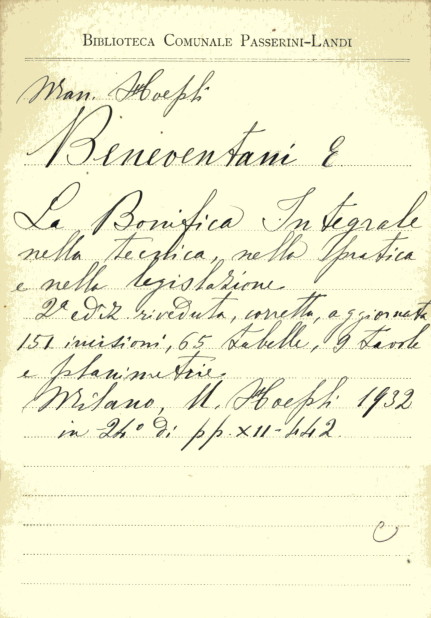 BIBLIOTECA COMUNALE PASSERINI-LANDI
Man. Hoepli
Beneventani E
La Bonifica Integrale
nella tecnica, nella pratica
e nella legislazione
2ª ediz. riveduta, corretta, aggiornata
151 incisioni, 65 tabelle, 9 tavole
e planimetrie.
Milano, U. Hoepli 1932
in 24° di pp. XII-442.
C